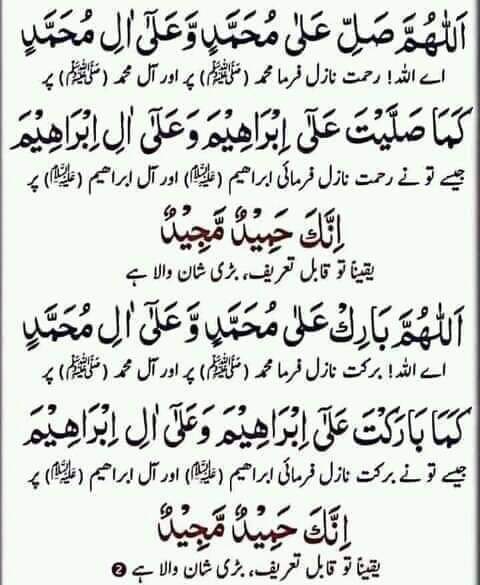 اَللّٰهُمَّ صَلِّ عَلٰی مُحَمَّدٍ وَّعَلٰٓی اٰلِ مُحَمَّدٍ
اے اللہ! رحمت نازل فرما محمد (ﷺ) پر اور آل محمد (ﷺ) پر
كَمَا صَلَّيْتَ عَلٰٓی اِبْرَاهِيْمَ وَعَلٰٓی اٰلِ اِبْرَاهِيْمَ
جیسے تو نے رحمت نازل فرمائی ابراھیم (علیہ السلام) اور آل ابراھیم (علیہ السلام) پر
اِنَّكَ حَمِيْدٌ مَّجِيْدٌ
یقیناً تو قابل تعریف، بڑی شان والا ہے
اَللّٰهُمَّ بَارِكْ عَلٰی مُحَمَّدٍ وَّعَلٰٓی اٰلِ مُحَمَّدٍ
اے اللہ! برکت نازل فرما محمد (ﷺ) پر اور آل محمد (ﷺ) پر
كَمَا بَارَكْتَ عَلٰٓی اِبْرَاهِيْمَ وَعَلٰٓی اٰلِ اِبْرَاهِيْمَ
جیسے تو نے برکت نازل فرمائی ابراھیم (علیہ السلام) اور آل ابراھیم (علیہ السلام) پر
اِنَّكَ حَمِيْدٌ مَّجِيْدٌ
یقیناً تو قابل تعریف، بڑی شان والا ہے ❷